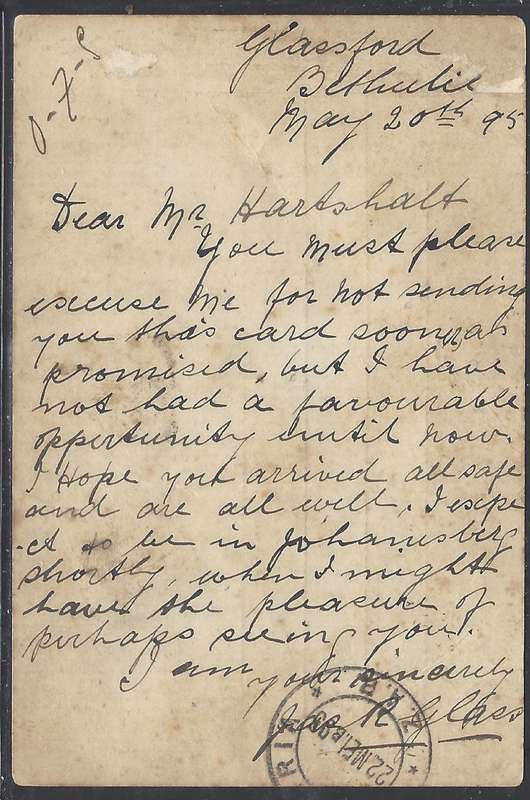 Glassford
Bethulie
May 20th 95
Dear Mr Hartshalt
You must please
excuse me for not sending
you this card sooner as
promised, but I have
not had a favourable
oppertunity until now.
I Hope you arrived all safe
and are all well. I expe
-ct to be in Johannsberg
shortly, when I might
have the pleasure of
perhaps seeing you.
I am
your sincerely
Jas R Glass
Z.A.R.
22 MEI